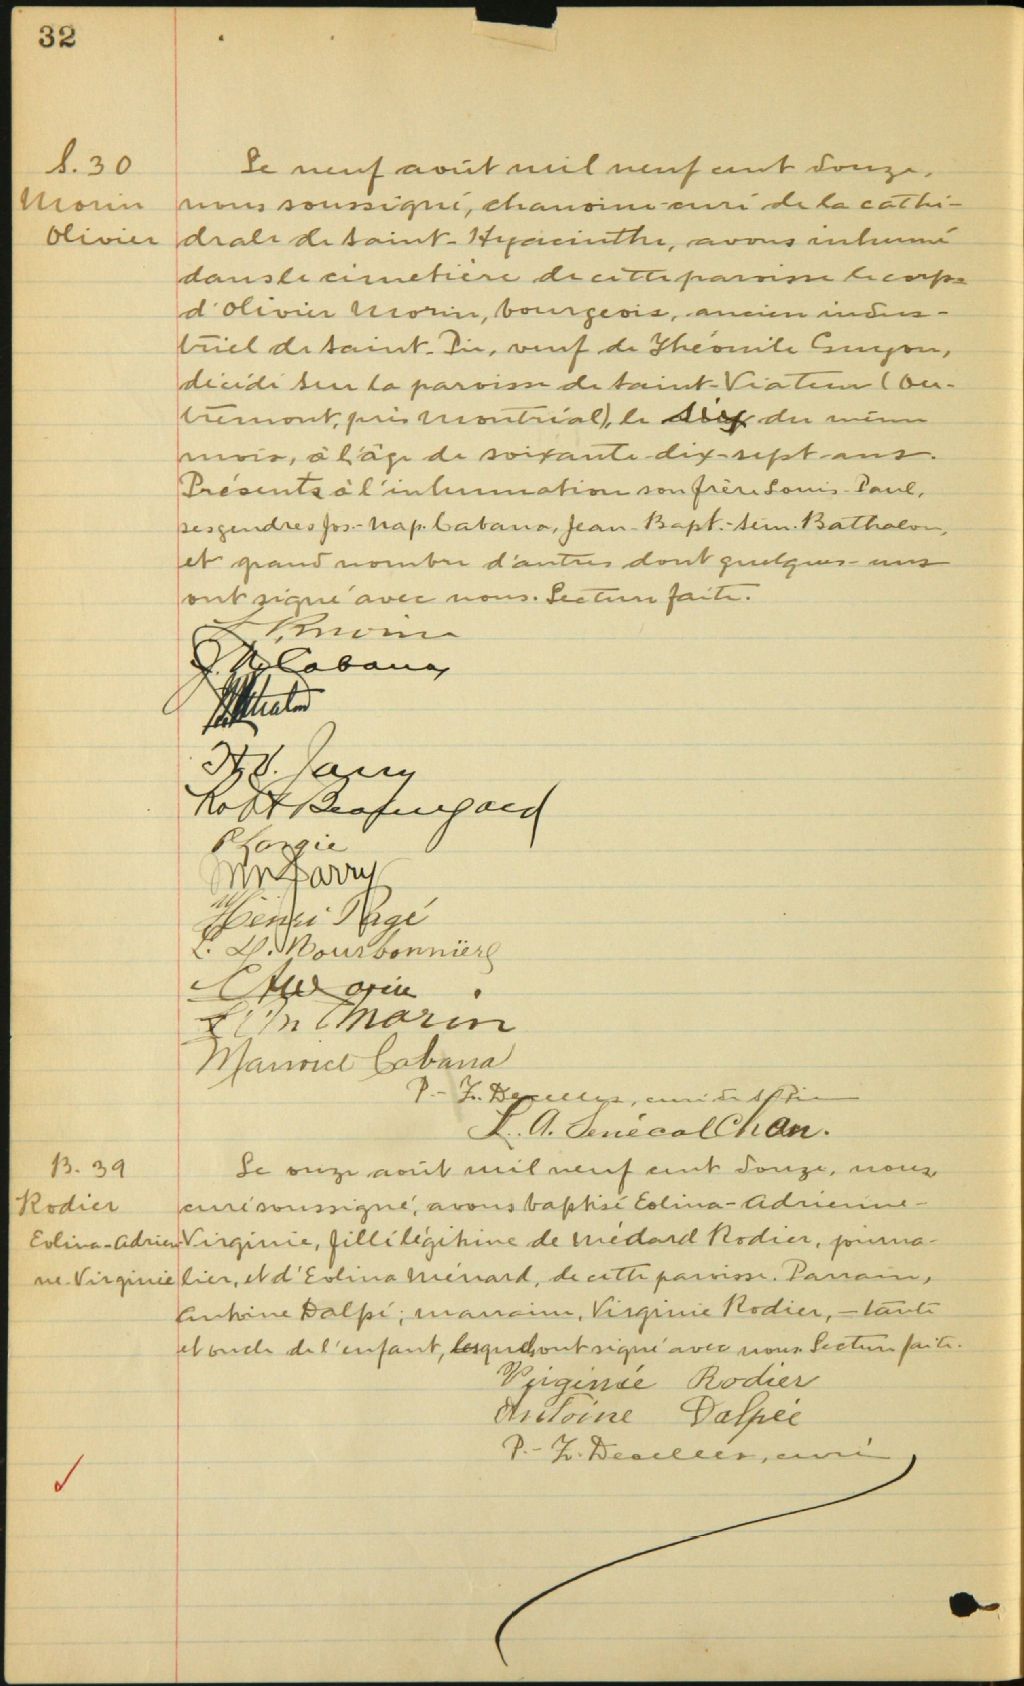 32
S. 30
Morin
Olivier
Le neuf août mil neuf cent douze,
nous soussigné, chanoine-curé de la cathé-
drale de Saint-Hyacinthe, avons inhumé
dans le cimetière de cette paroisse le corps
d'Olivier Morin, bourgeois, ancien indus-
triel de Saint-Pie, veuf de Théotile Guyon,
décédé sur la paroisse de Saint-Viateur (Ou-
tremont, près Montréal), le six du même
mois, à l'âge de soixante-dix-sept ans.
Présents à l'inhumation son frère Louis-Paul,
ses gendres Jos.-Nap. Cabana, Jean-Bapt.-Sim. Bathalon,
et grand nombre d'autres dont quelques-uns
ont signé avec nous. Lecture faite.
J. N. Cabana
H. V. Jarry
Robt Beauregard
Jarry
Henri Pagé
L. H. Bourbonnière
Morin
Morin
Maurice Cabana
P.-Z. Decelles, curé de St Pie
L. A. Senécal Chan.
B. 39
Rodier
Eolina-Adrien
ne-Virginie
Le onze août mil neuf cent douze, nous,
curé soussigné, avons baptisé Eolina-Adrienne-
Virginie, fille légitime de Médard Rodier, journa-
lier, et d'Eolina Ménard, de cette paroisse. Parrain,
Antoine Dalpé; marraine, Virginie Rodier, – tante
et oncle de l'enfant, lesquels ont signé avec nous. Lecture faite.
Virginie Rodier
Antoine Dalpée
P.-Z. Decelles, curé